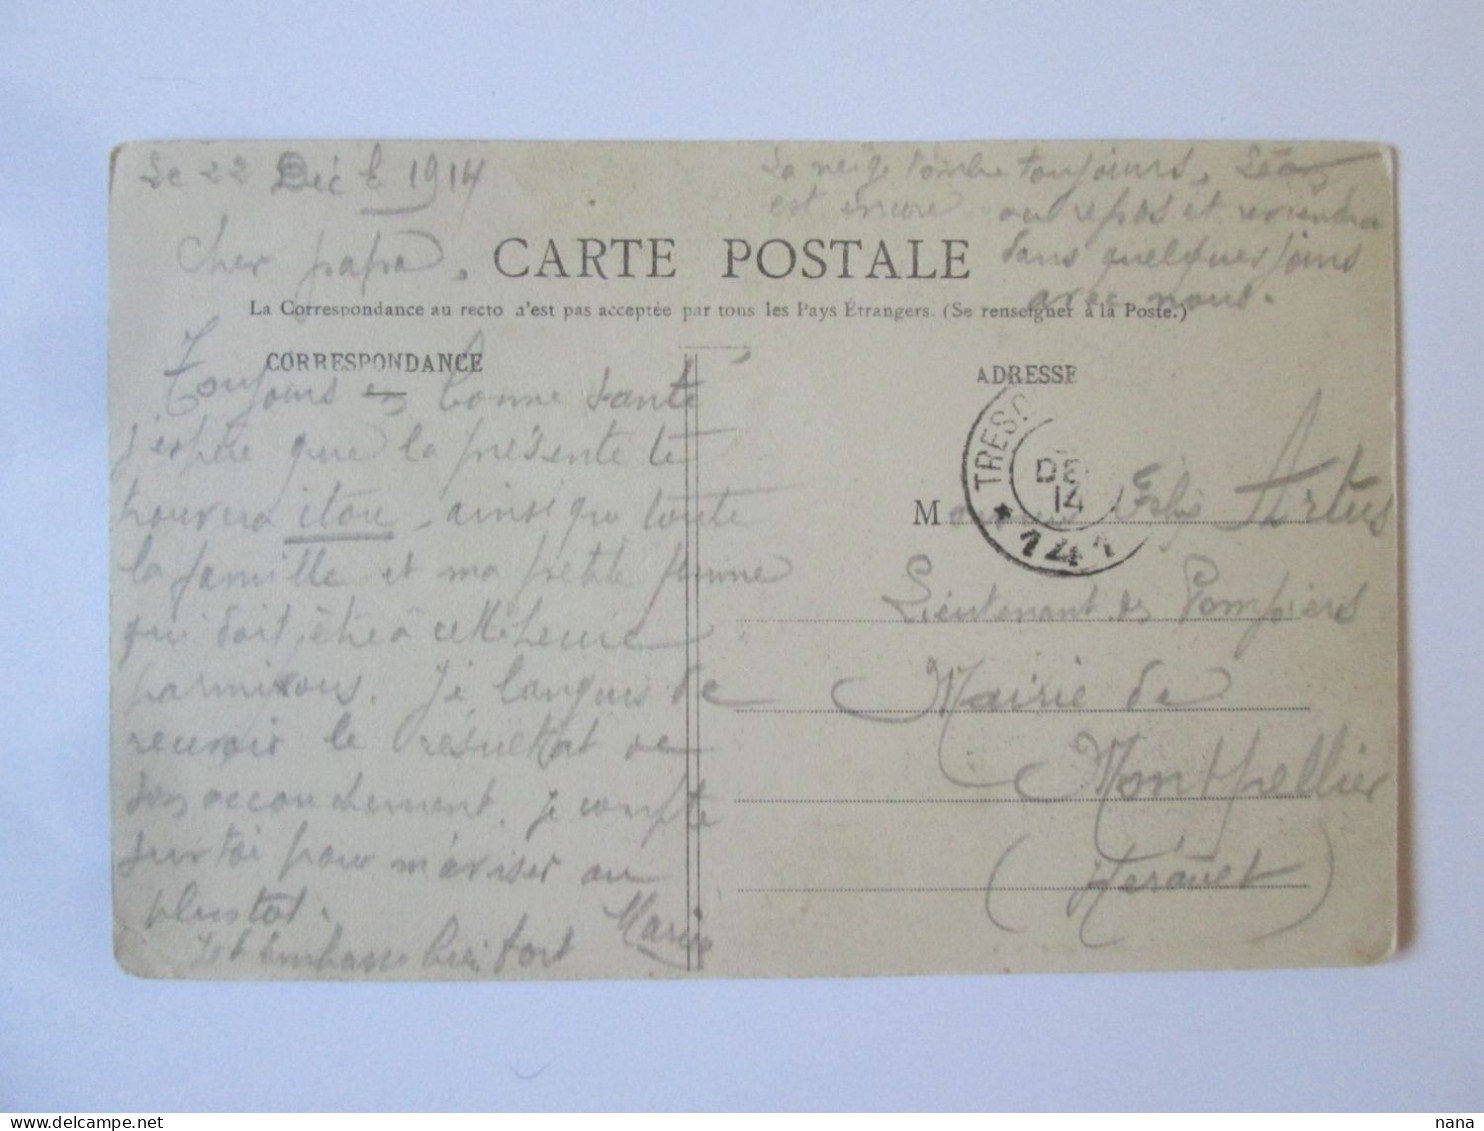 Le 22 Déc b 1914
La neige tombe toujours. Léon
est encore au repos et reviendra
dans quelques jours
avec nous.
Cher papa.
CARTE POSTALE
La Correspondance au recto n'est pas acceptée par tous les Pays Étrangers. (Se renseigner à la Poste.)
CORRESPONDANCE
Toujours en bonne santé
j'espère que la présente te
trouvera itou ainsi que toute
la famille et ma petite femme
qui doit être à cette heure
parmi vous. Je languis de
recevoir le résultat de
son accouchement. je compte
sur toi pour m'aviser au
plustôt.
Je t'embrasse bien fort
ADRESSE
TRESO
DE
14
* 141
Monsieur Felix Artus
Lieutenant des Pompiers
Mairie de
Montpellier
(Hérault)
delcampe.net
nana